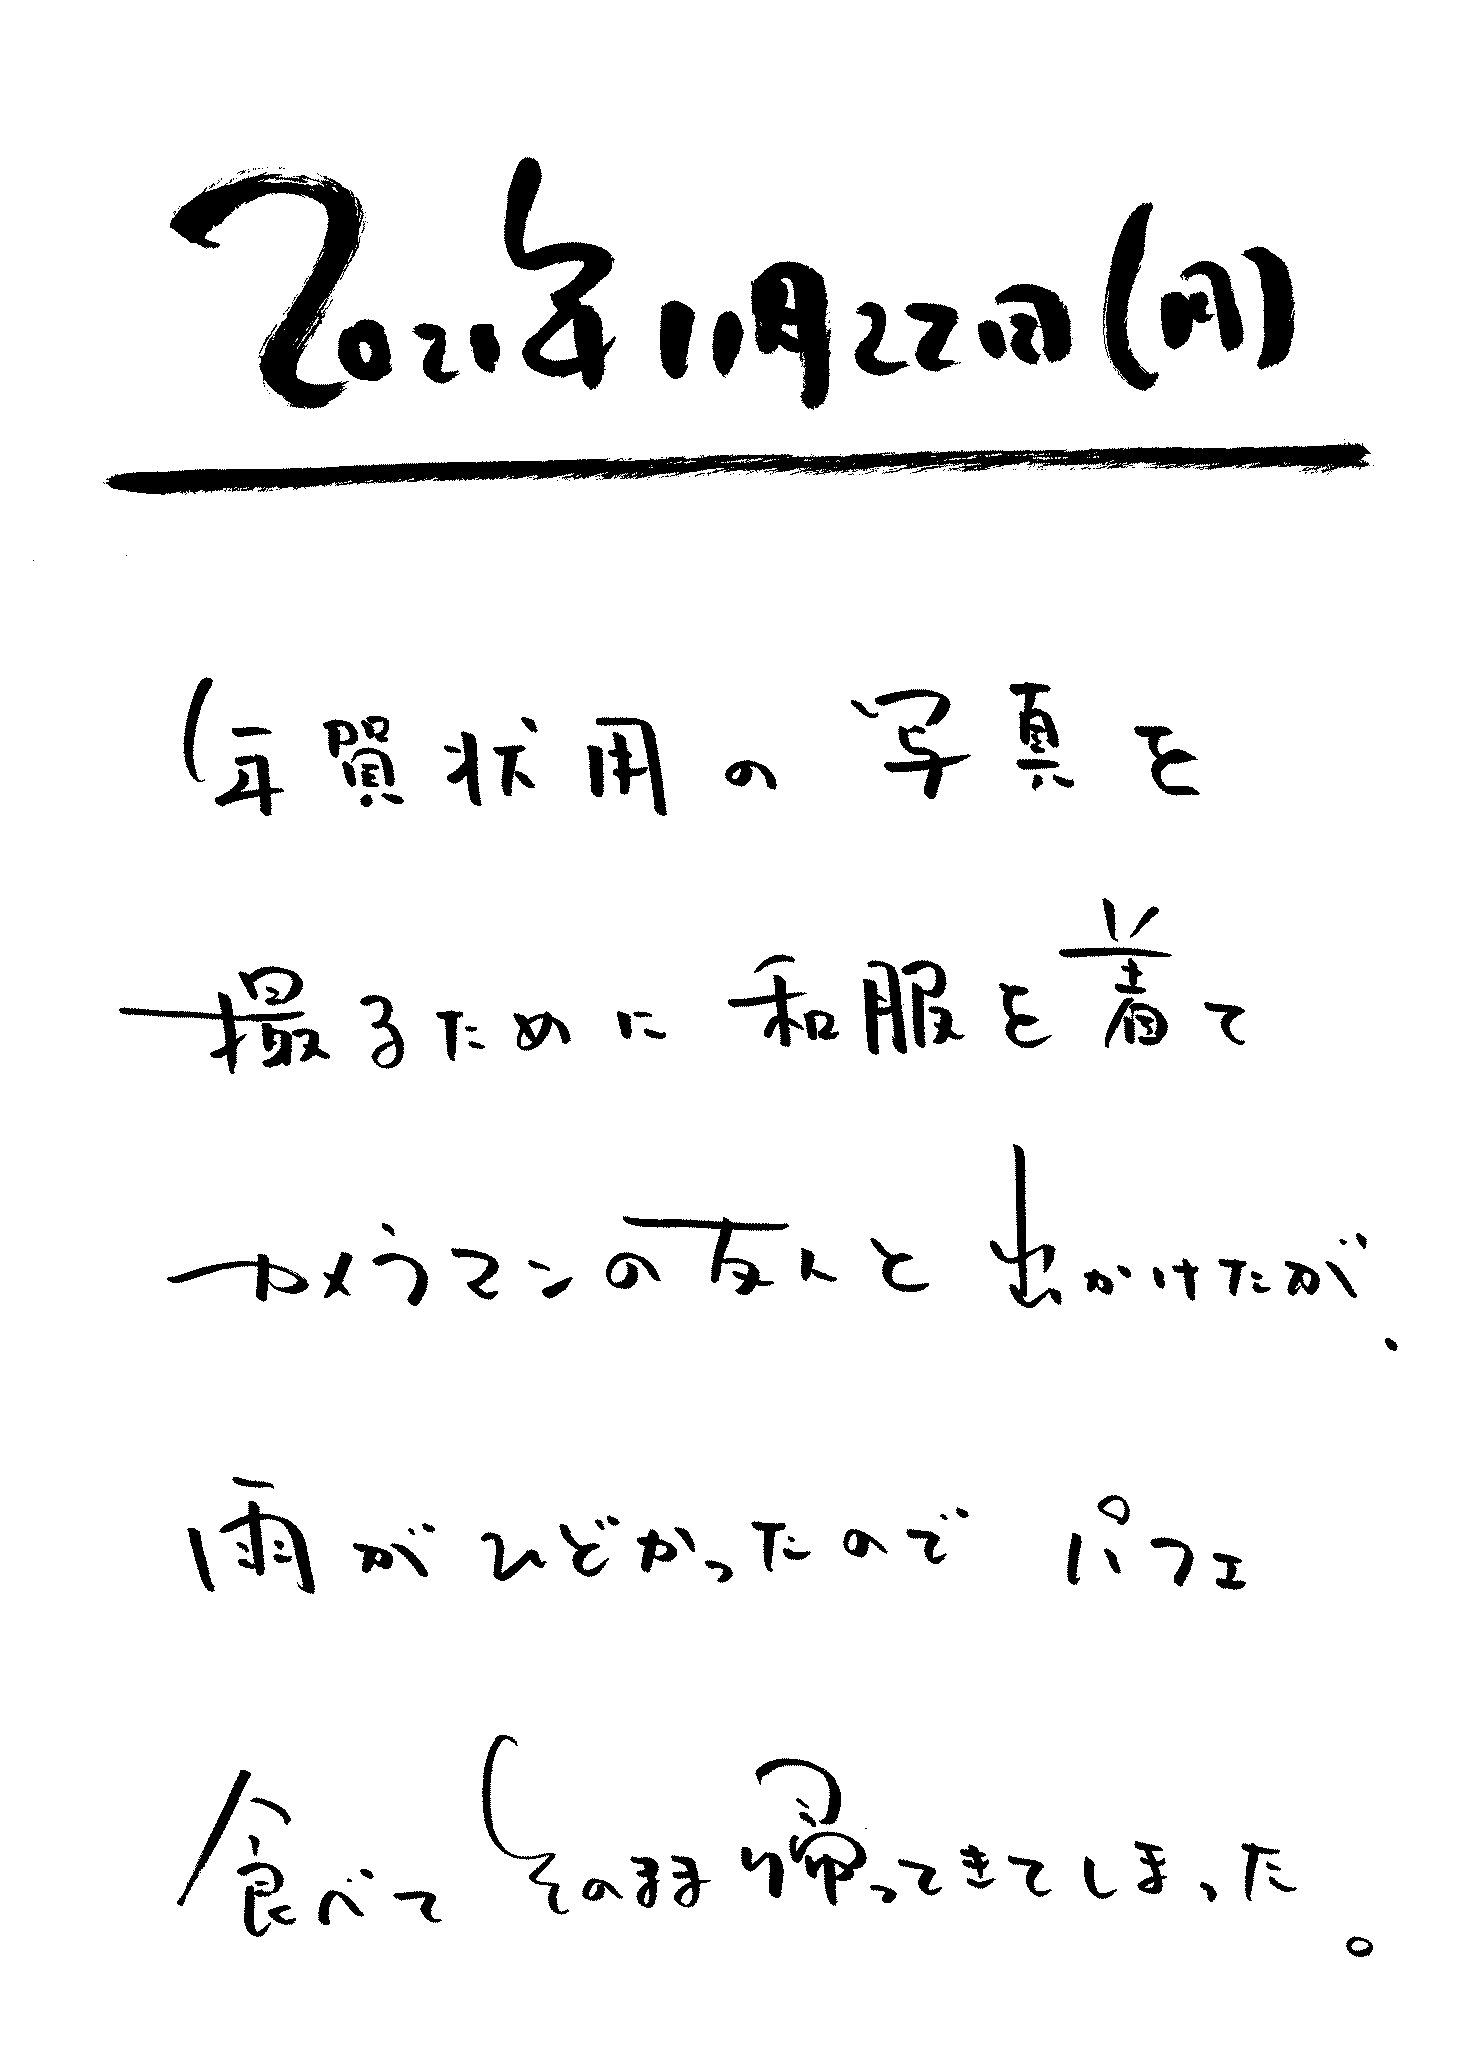 2021年11月22日(月)
年賀状用の写真を
撮るために和服を着て
カメラマンの友人と出かけたが、
雨がひどかったのでパフェ
食べてそのまま帰ってきてしまった。